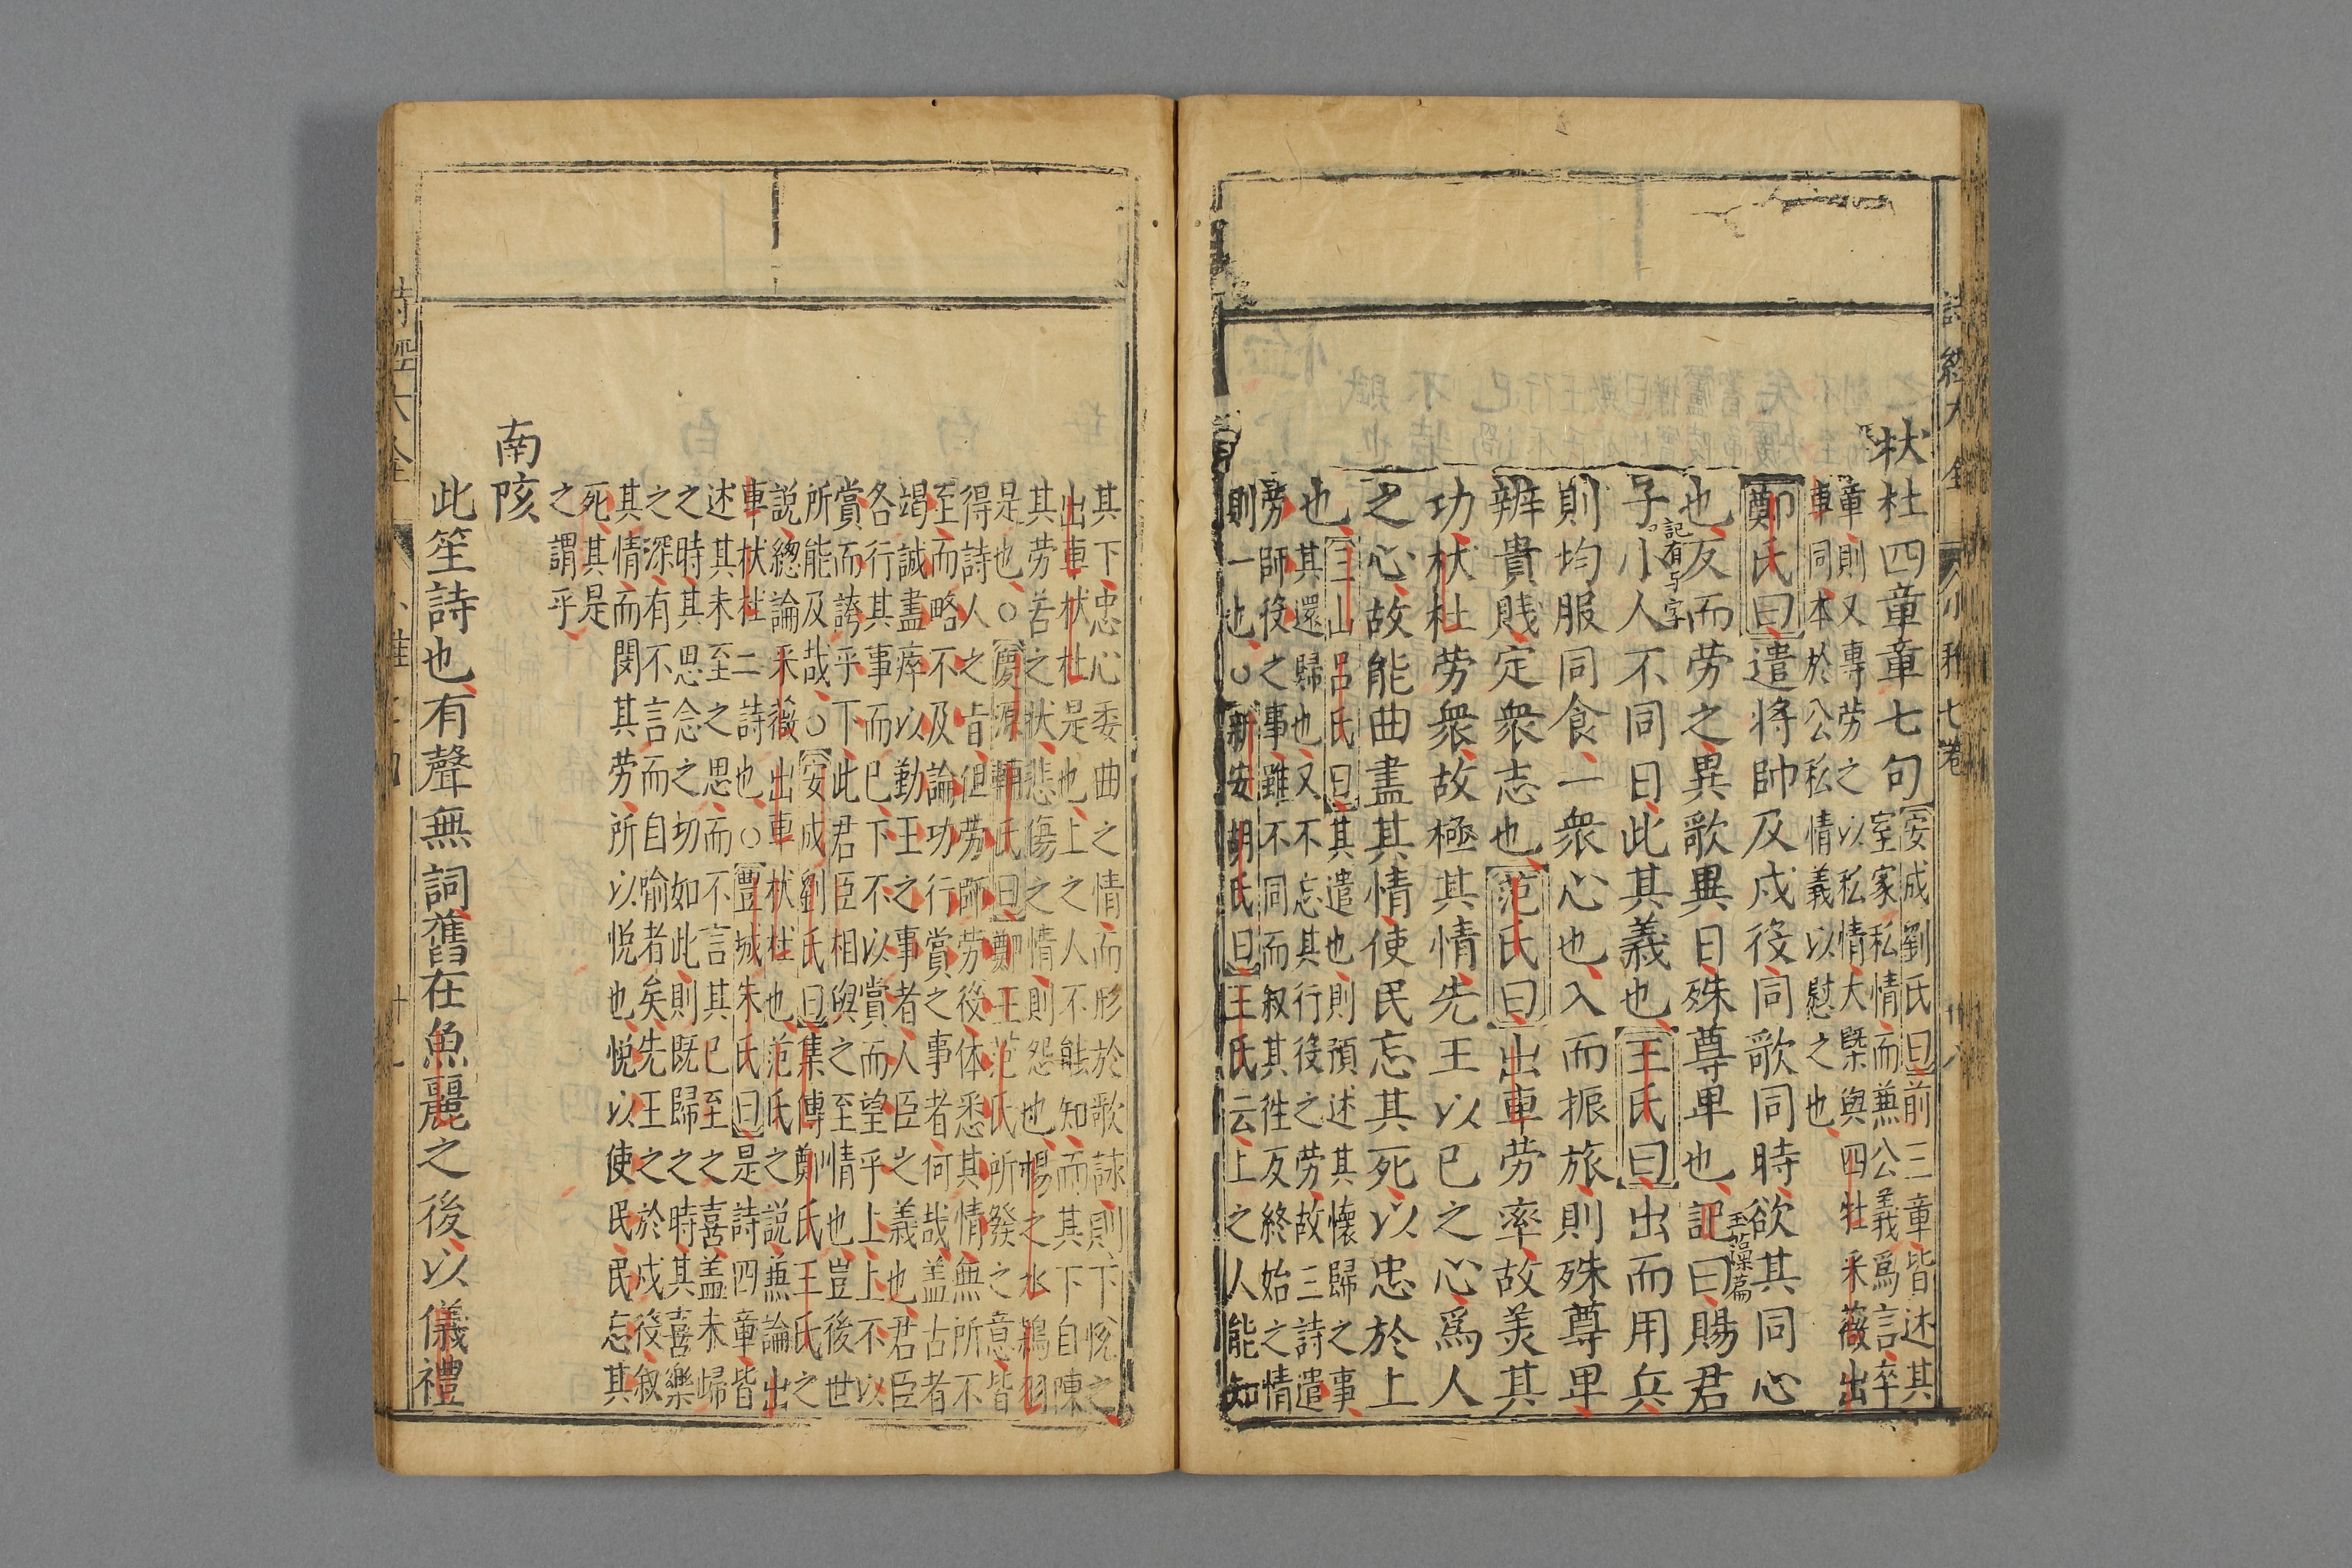 詩經大全 小雅七卷 十八
杕杜四章章七句
安成劉氏曰前三章皆述其
室家私情而兼公義爲言卒
章則又專勞之以私情大槩與四牡采薇出
車同本於公私情義以慰之也
鄭氏曰遣將帥及戍役同歌同時欲其同心
也反而勞之異歌異日殊尊卑也記曰賜君
玉藻篇
子小人不同日此其義也王氏曰出而用兵
記有与字
則均服同食一衆心也入而振旅則殊尊卑
辨貴賤定衆志也范氏曰出車勞率故美其
功杕杜勞衆故極其情先王以已之心爲人
之心故能曲盡其情使民忘其死以忠於上
也
三山呂氏曰其遣也則預述其懷歸之事
其還歸也又不忘其行役之勞故三詩遣
勞師役之事雖不同而叙其徃反終始之情
則一也○新安胡氏曰王氏云上之人能知
其下忠心委曲之情而形於歌詠則下悅之
出車杕杜是也上之人不能知而其下自陳
其勞苦之狀悲傷之情則怨也揚之水鴇羽
是也○慶源輔氏曰鄭王范氏所發之意皆
得詩人之旨但勞師勞役体悉其情無所不
至而略不及論功行賞之事者何哉盖古者
竭誠盡瘁以勤王之事者人臣之義也君臣
各行其事而已下不以賞而望乎上上不以
賞而誇乎下此君臣相與之至情也豈後世
所能及哉○安成劉氏曰集傳鄭氏王氏之
說總論采薇出車杕杜也范氏之說兼論出
車杕杜二詩也○豐城朱氏曰是詩四章皆
述其未至之思而不言其已至之喜盖未歸
之時其思念之切如此則既歸之時其喜樂
之深有不言而自喻者矣先王之於戍役叙
其情而閔其勞所以悅也悅以使民民忘其
死其是
之謂乎
南陔
此笙詩也有聲無詞舊在魚麗之後以儀禮